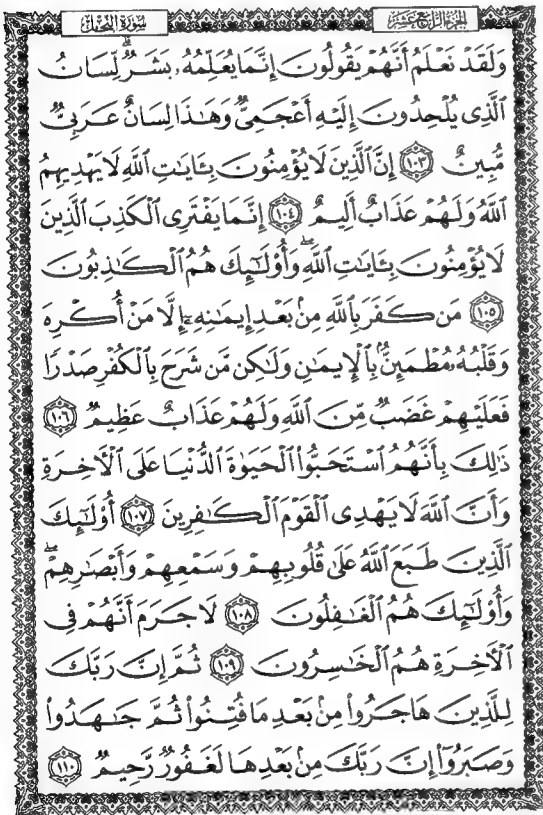 الجزء الرابع عشر
سورة النحل
وَلَقَدْ نَعْلَمُ أَنَّهُمْ يَقُولُونَ إِنَّمَا يُعَلِّمُهُۥ بَشَرٌۗ لِّسَانُ
ٱلَّذِى يُلْحِدُونَ إِلَيْهِ أَعْجَمِىٌّ وَهَٰذَا لِسَانٌ عَرَبِىٌّ
مُّبِينٌ ١٠٣ إِنَّ ٱلَّذِينَ لَا يُؤْمِنُونَ بِـَٔايَٰتِ ٱللَّهِ لَا يَهْدِيهِمُ
ٱللَّهُ وَلَهُمْ عَذَابٌ أَلِيمٌ ١٠٤ إِنَّمَا يَفْتَرِى ٱلْكَذِبَ ٱلَّذِينَ
لَا يُؤْمِنُونَ بِـَٔايَٰتِ ٱللَّهِۖ وَأُو۟لَٰٓئِكَ هُمُ ٱلْكَٰذِبُونَ
١٠٥ مَن كَفَرَ بِٱللَّهِ مِنۢ بَعْدِ إِيمَٰنِهِۦٓ إِلَّا مَنْ أُكْرِهَ
وَقَلْبُهُۥ مُطْمَئِنٌّۢ بِٱلْإِيمَٰنِ وَلَٰكِن مَّن شَرَحَ بِٱلْكُفْرِ صَدْرًا
فَعَلَيْهِمْ غَضَبٌ مِّنَ ٱللَّهِ وَلَهُمْ عَذَابٌ عَظِيمٌ ١٠٦
ذَٰلِكَ بِأَنَّهُمُ ٱسْتَحَبُّوا۟ ٱلْحَيَوٰةَ ٱلدُّنْيَا عَلَى ٱلْأَخِرَةِ
وَأَنَّ ٱللَّهَ لَا يَهْدِى ٱلْقَوْمَ ٱلْكَٰفِرِينَ ١٠٧ أُو۟لَٰٓئِكَ
ٱلَّذِينَ طَبَعَ ٱللَّهُ عَلَىٰ قُلُوبِهِمْ وَسَمْعِهِمْ وَأَبْصَٰرِهِمْۖ
وَأُو۟لَٰٓئِكَ هُمُ ٱلْغَٰفِلُونَ ١٠٨ لَا جَرَمَ أَنَّهُمْ فِى
ٱلْأَخِرَةِ هُمُ ٱلْخَٰسِرُونَ ١٠٩ ثُمَّ إِنَّ رَبَّكَ
لِلَّذِينَ هَاجَرُوا۟ مِنۢ بَعْدِ مَا فُتِنُوا۟ ثُمَّ جَٰهَدُوا۟
وَصَبَرُوٓا۟ إِنَّ رَبَّكَ مِنۢ بَعْدِهَا لَغَفُورٌ رَّحِيمٌ ١١٠